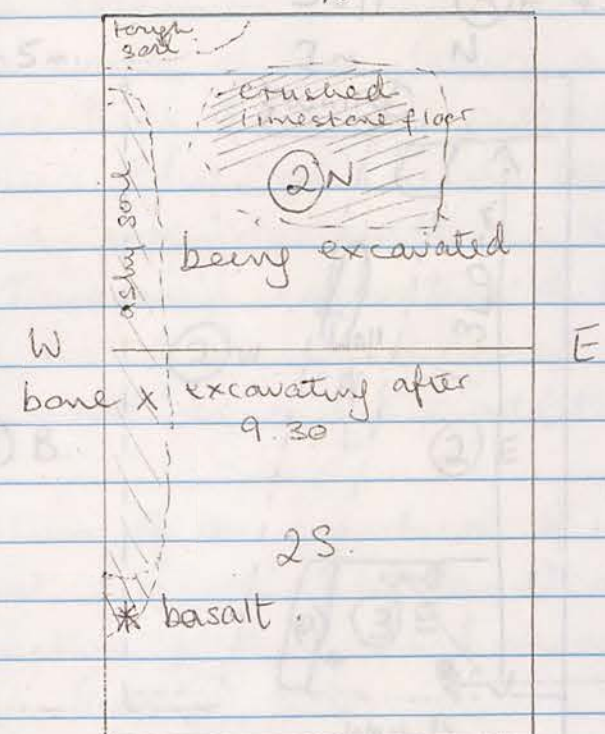 tough
soil
crushed
limestone floor
2 N
ashy soil
being excavated
W
E
bone x excavating after
9.30
2S.
* basalt.